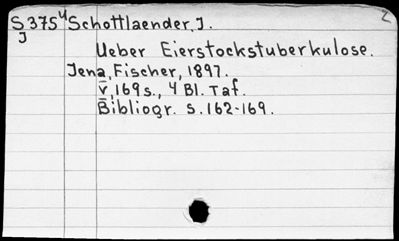 S375⁴ Schottlaender, J. 2
J
Ueber Eierstockstuberkulose.
Jena, Fischer, 1897.
V, 169 s., 4 Bl. Taf.
Bibliogr. S. 162-169.